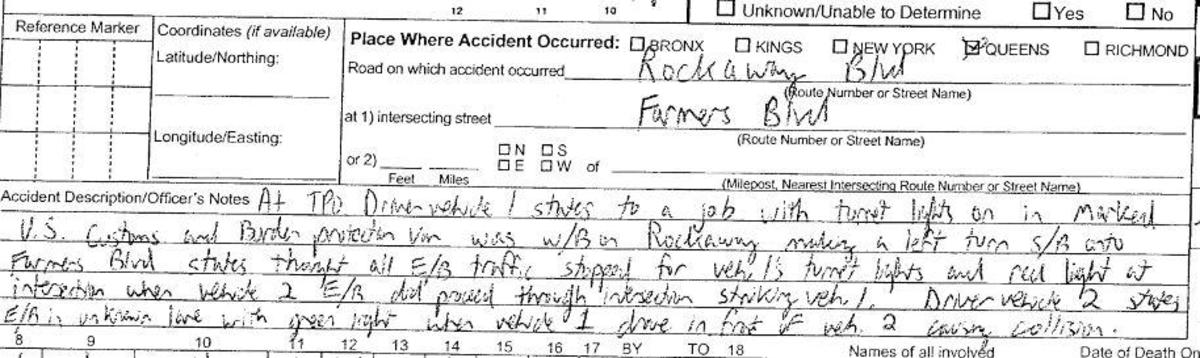 12 11 10 9
☐ Unknown/Unable to Determine ☐ Yes ☐ No
Reference Marker
Coordinates (if available)
Latitude/Northing:
Longitude/Easting:
Place Where Accident Occurred: ☐ BRONX ☐ KINGS ☐ NEW YORK ☒ QUEENS ☐ RICHMOND
Road on which accident occurred Rockaway Blvd
(Route Number or Street Name)
at 1) intersecting street Farmers Blvd
(Route Number or Street Name)
☐ N ☐ S
or 2) ☐ E ☐ W of
Feet Miles
(Milepost, Nearest Intersecting Route Number or Street Name)
Accident Description/Officer's Notes At TPO Driver vehicle 1 states to a job with turret lights on in Marked
U.S. Customs and Border protection Van was W/B on Rockaway making a left turn S/B onto
Farmers Blvd states thought all E/B traffic stopped for veh 1's turret lights and red light at
intersection when vehicle 2 E/B did proceed through intersection striking veh 1. Driver vehicle 2 states
E/B in unknown lane with green light when vehicle 1 drove in front of veh. 2 causing collision.
8 9 10 11 12 13 14 15 16 17 BY TO 18 Names of all involved Date of Death